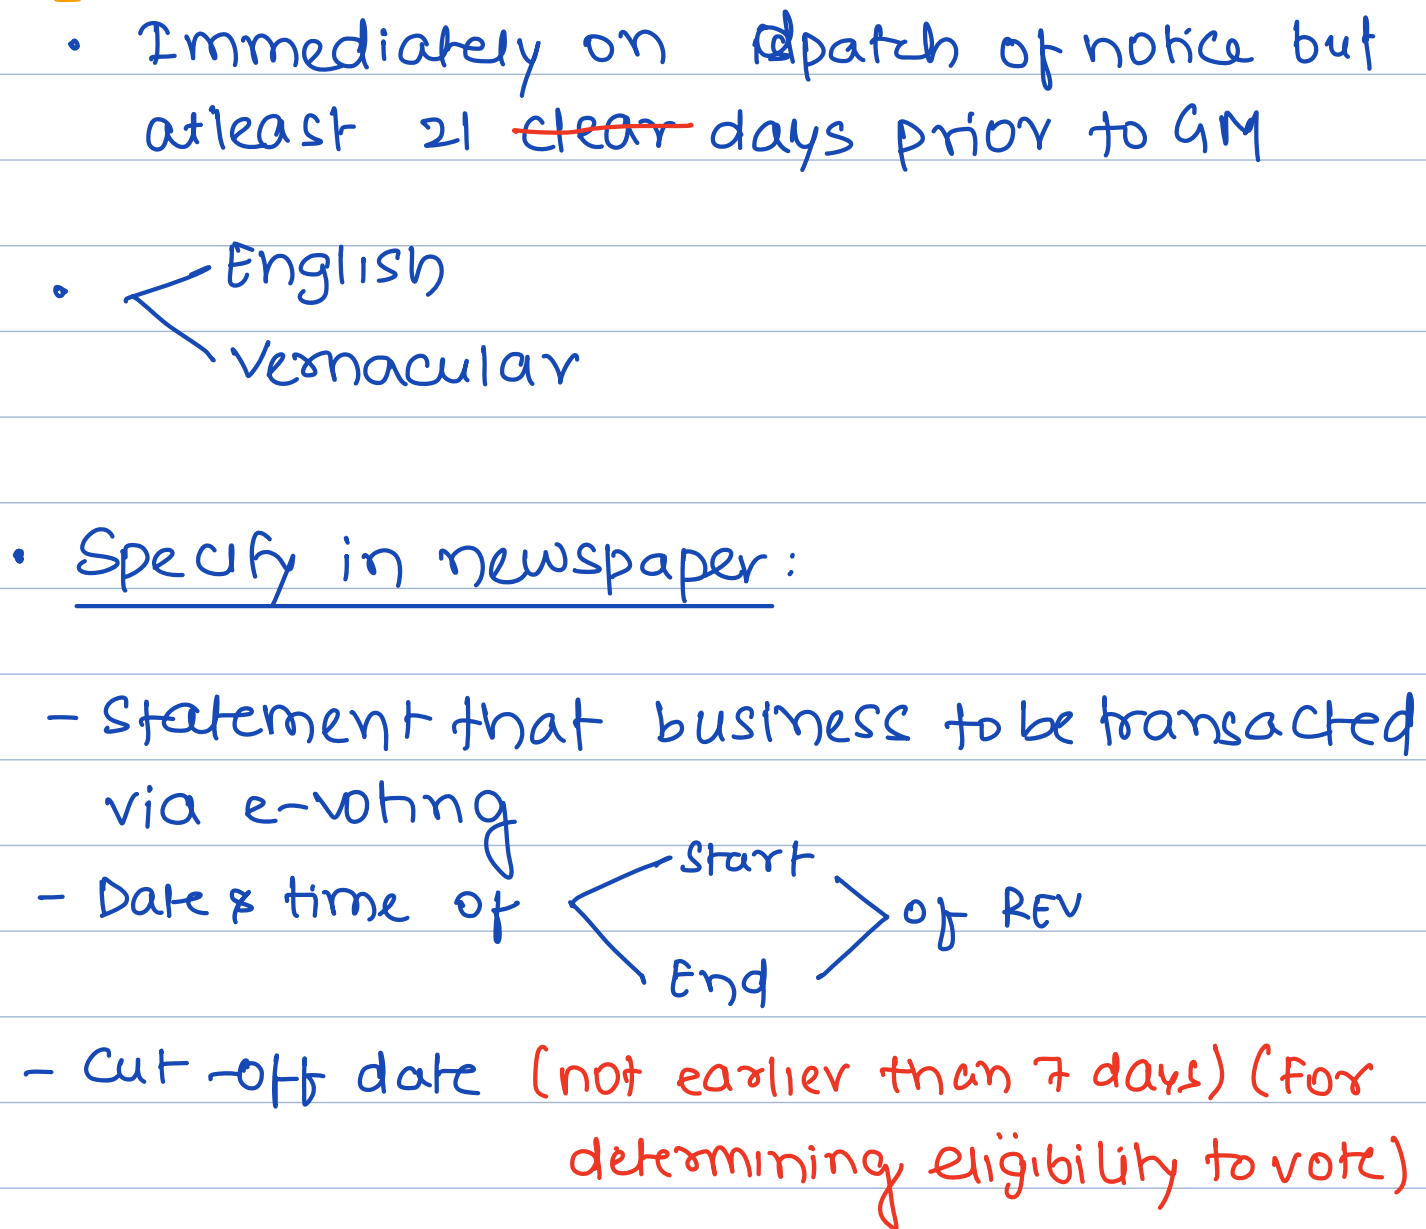 • Immediately on dpatch of notice but
atleast 21 clear days prior to GM
• English
Vernacular
• Specify in newspaper:
- Statement that business to be transacted
via e-voting
- Date & time of Start
End of REV
- Cut-off date (not earlier than 7 days) (For
determining eligibility to vote)